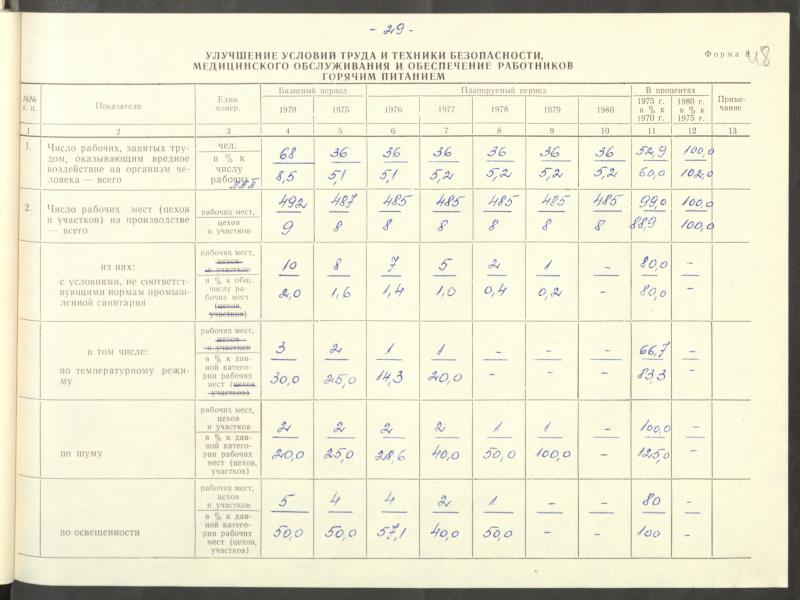 - 29 -
Форма 8
48
УЛУЧШЕНИЕ УСЛОВИЙ ТРУДА И ТЕХНИКИ БЕЗОПАСНОСТИ,
МЕДИЦИНСКОГО ОБСЛУЖИВАНИЯ И ОБЕСПЕЧЕНИЕ РАБОТНИКОВ
ГОРЯЧИМ ПИТАНИЕМ
№№ п. п. Показатели Един. измер. Базисный период Планируемый период В процентах Примечание
1970 1975 1976 1977 1978 1979 1980 1975 г. в % к 1970 г. 1980 г. в % к 1975 г.
1 2 3 4 5 6 7 8 9 10 11 12 13
1. Число рабочих, занятых тру- чел. 68 36 36 36 36 36 36 52,9 100,0
дом, оказывающим вредное в % к
воздействие на организм че- числу 8,5 5,1 5,1 5,2 5,2 5,2 5,2 60,0 102,0
ловека — всего рабочих ППП
2. Число рабочих мест (цехов рабочих мест, 492 487 485 485 485 485 485 99,0 100,0
и участков) на производстве цехов 9 8 8 8 8 8 8 88,9 100,0
— всего и участков
рабочих мест,
цехов
из них: и участков 10 8 7 5 2 1 - 80,0 -
с условиями, не соответст- в % к общ.
вующими нормам промыш- числу ра- 2,0 1,6 1,4 1,0 0,4 0,2 - 80,0 -
ленной санитарии бочих мест
(цехов,
участков)
рабочих мест,
цехов
в том числе: и участков 3 2 1 1 - - - 66,7 -
в % к дан-
ной катего-
по температурному режи- рии рабочих 30,0 25,0 14,3 20,0 - - - 83,3 -
му мест (цехов,
участков)
рабочих мест,
цехов
и участков 2 2 2 2 1 1 - 100,0 -
в % к дан-
ной катего-
по шуму рии рабочих 20,0 25,0 28,6 40,0 50,0 100,0 - 125,0 -
мест (цехов,
участков)
рабочих мест,
цехов
и участков 5 4 4 2 1 - - 80 -
в % к дан-
ной катего-
по освещенности рии рабочих 50,0 50,0 57,1 40,0 50,0 - - 100 -
мест (цехов,
участков)